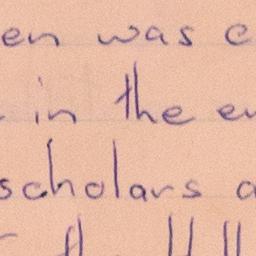 en was c
in the en
scholars a
the